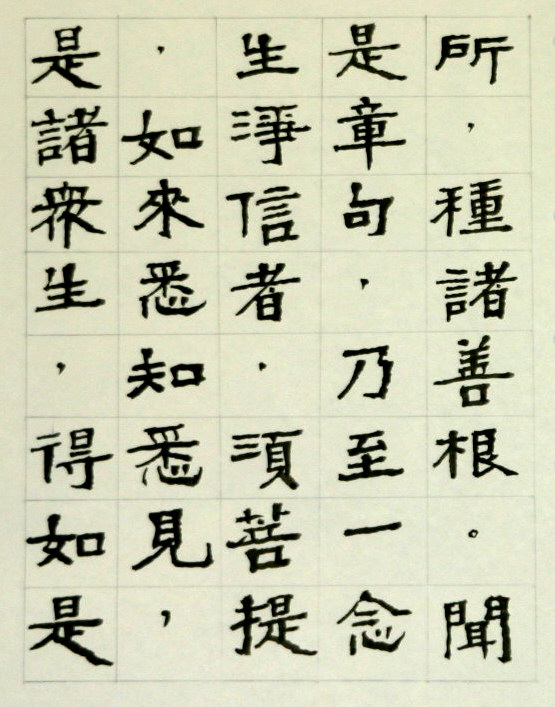 所，種諸善根。聞
是章句，乃至一念
生淨信者，須菩提
，如來悉知悉見，
是諸衆生，得如是